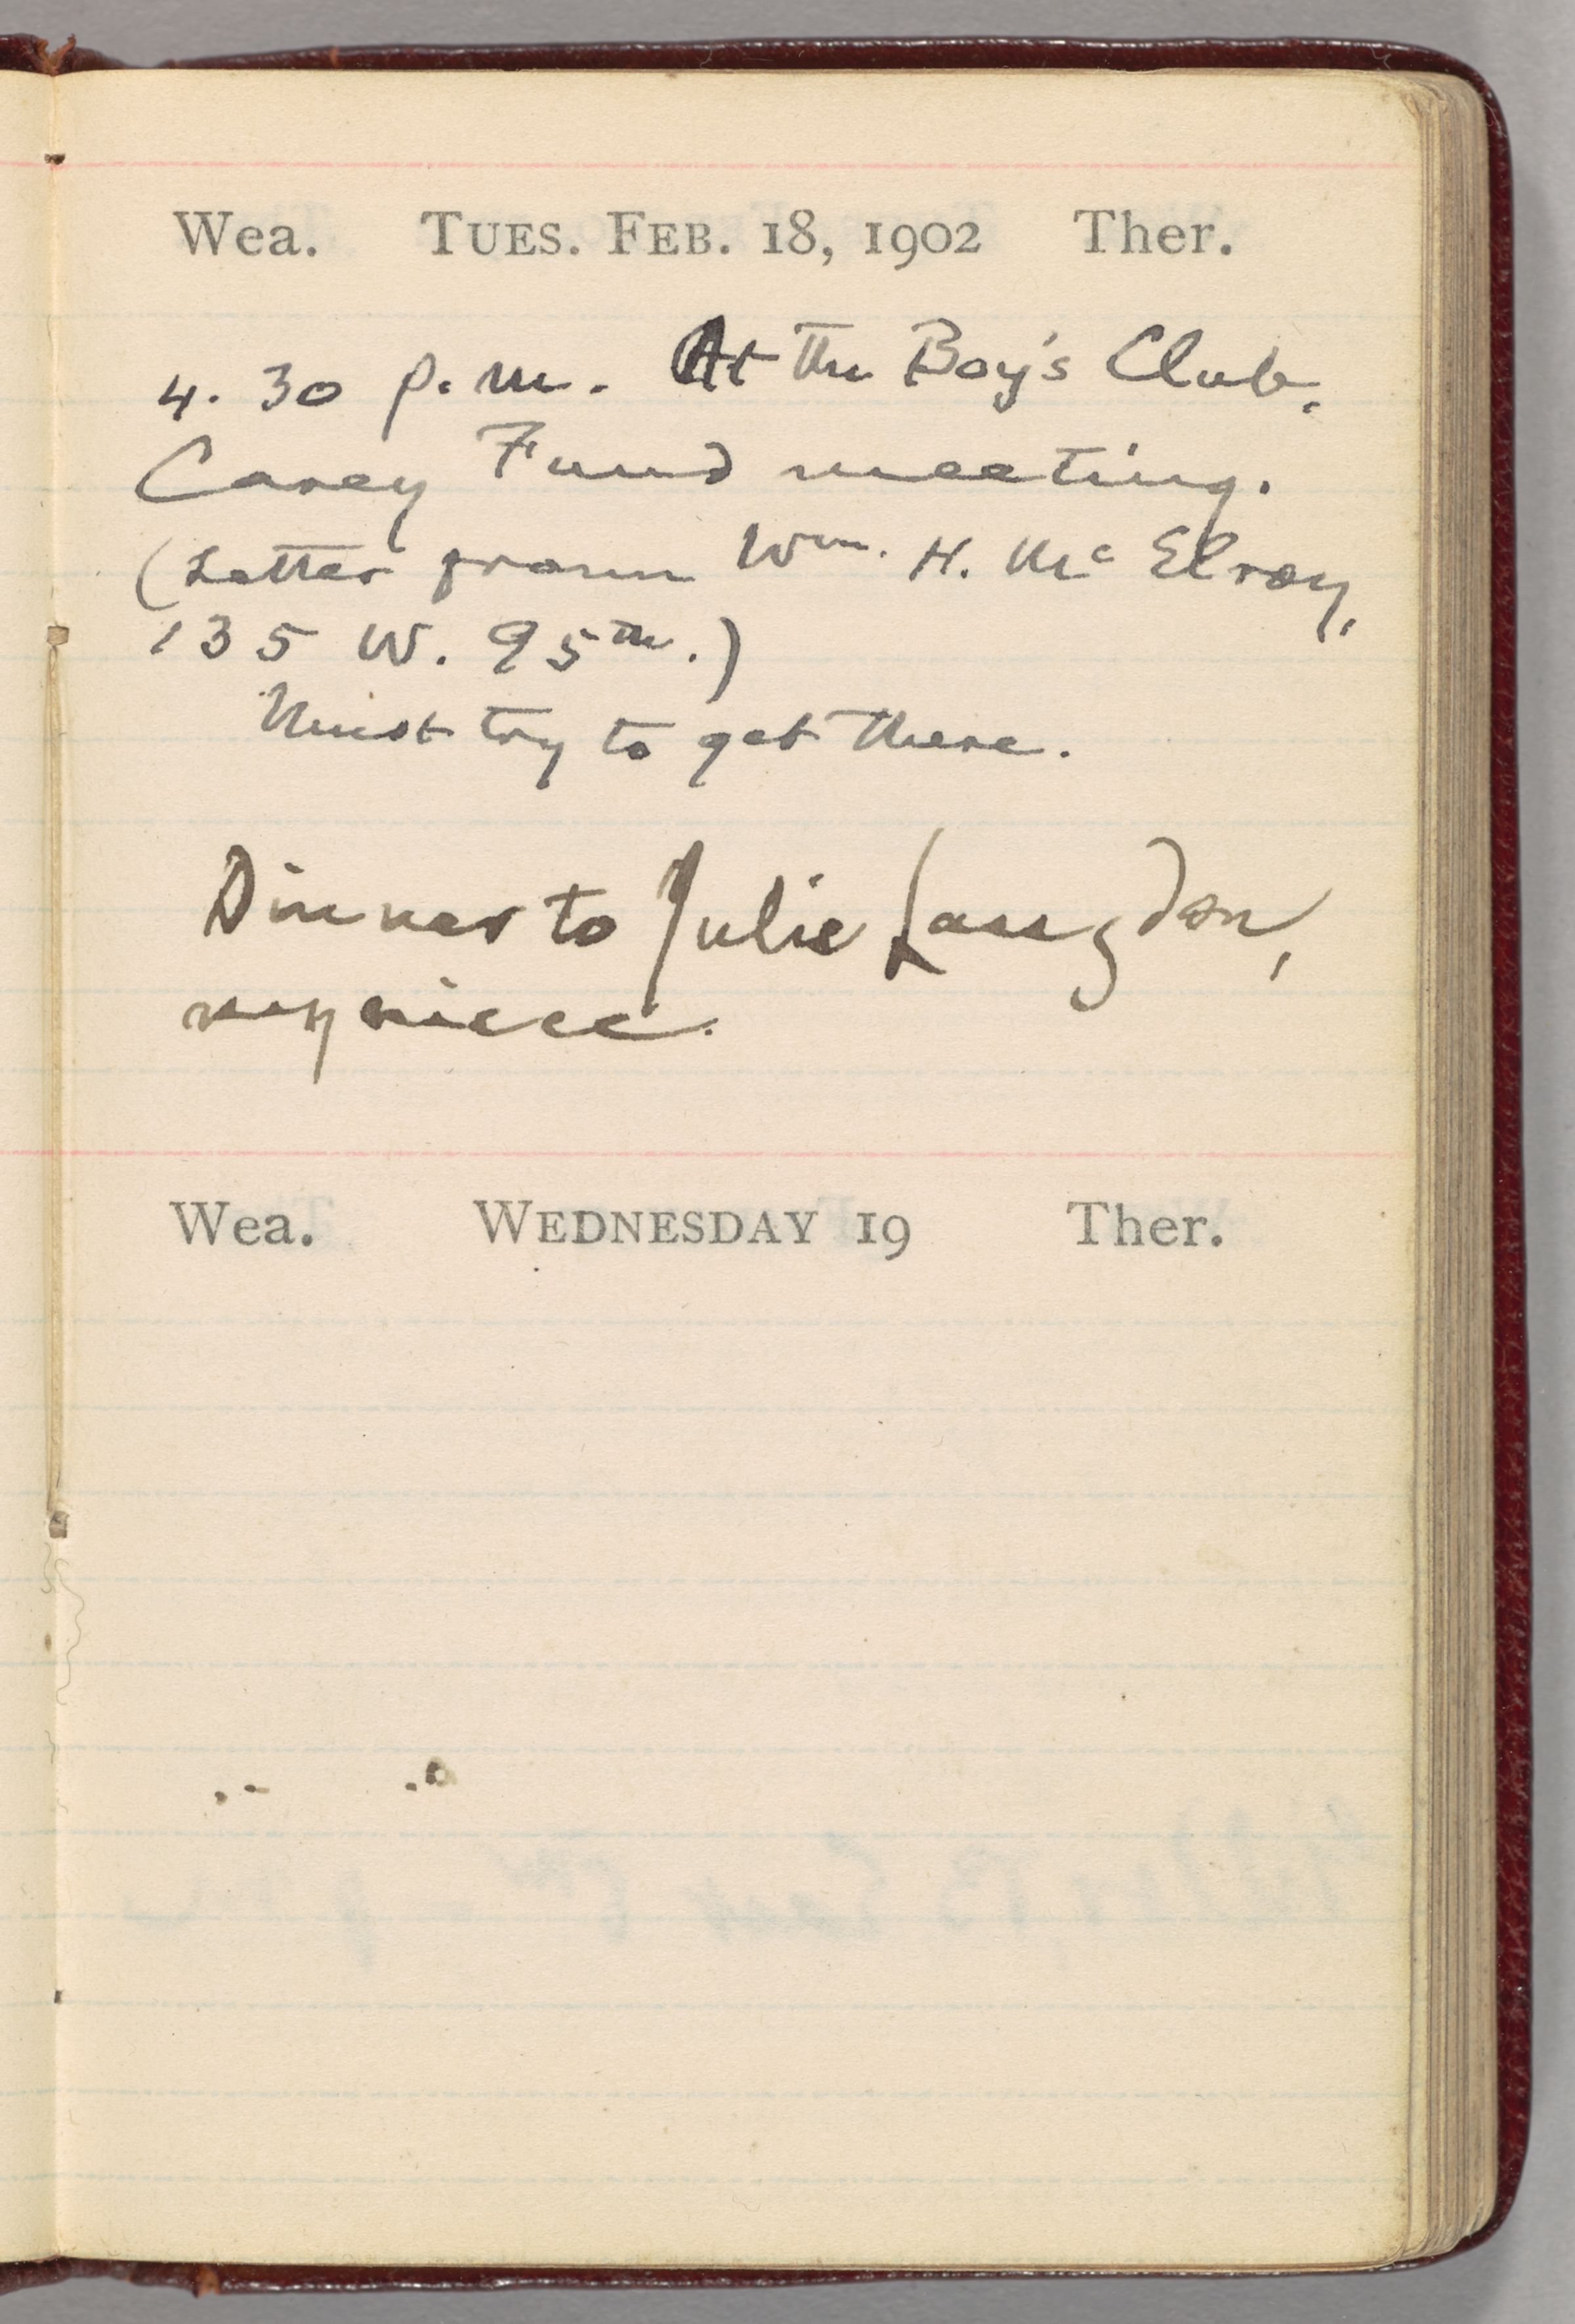 Wea. TUES. FEB. 18, 1902 Ther.
4.30 p.m. At the Boy's Club.
Carey Fund meeting.
(Letter from Wm. H. McElroy,
135 W. 95th.)
Must try to get there.
Dinner to Julie Langdon,
my niece.
Wea. WEDNESDAY 19 Ther.